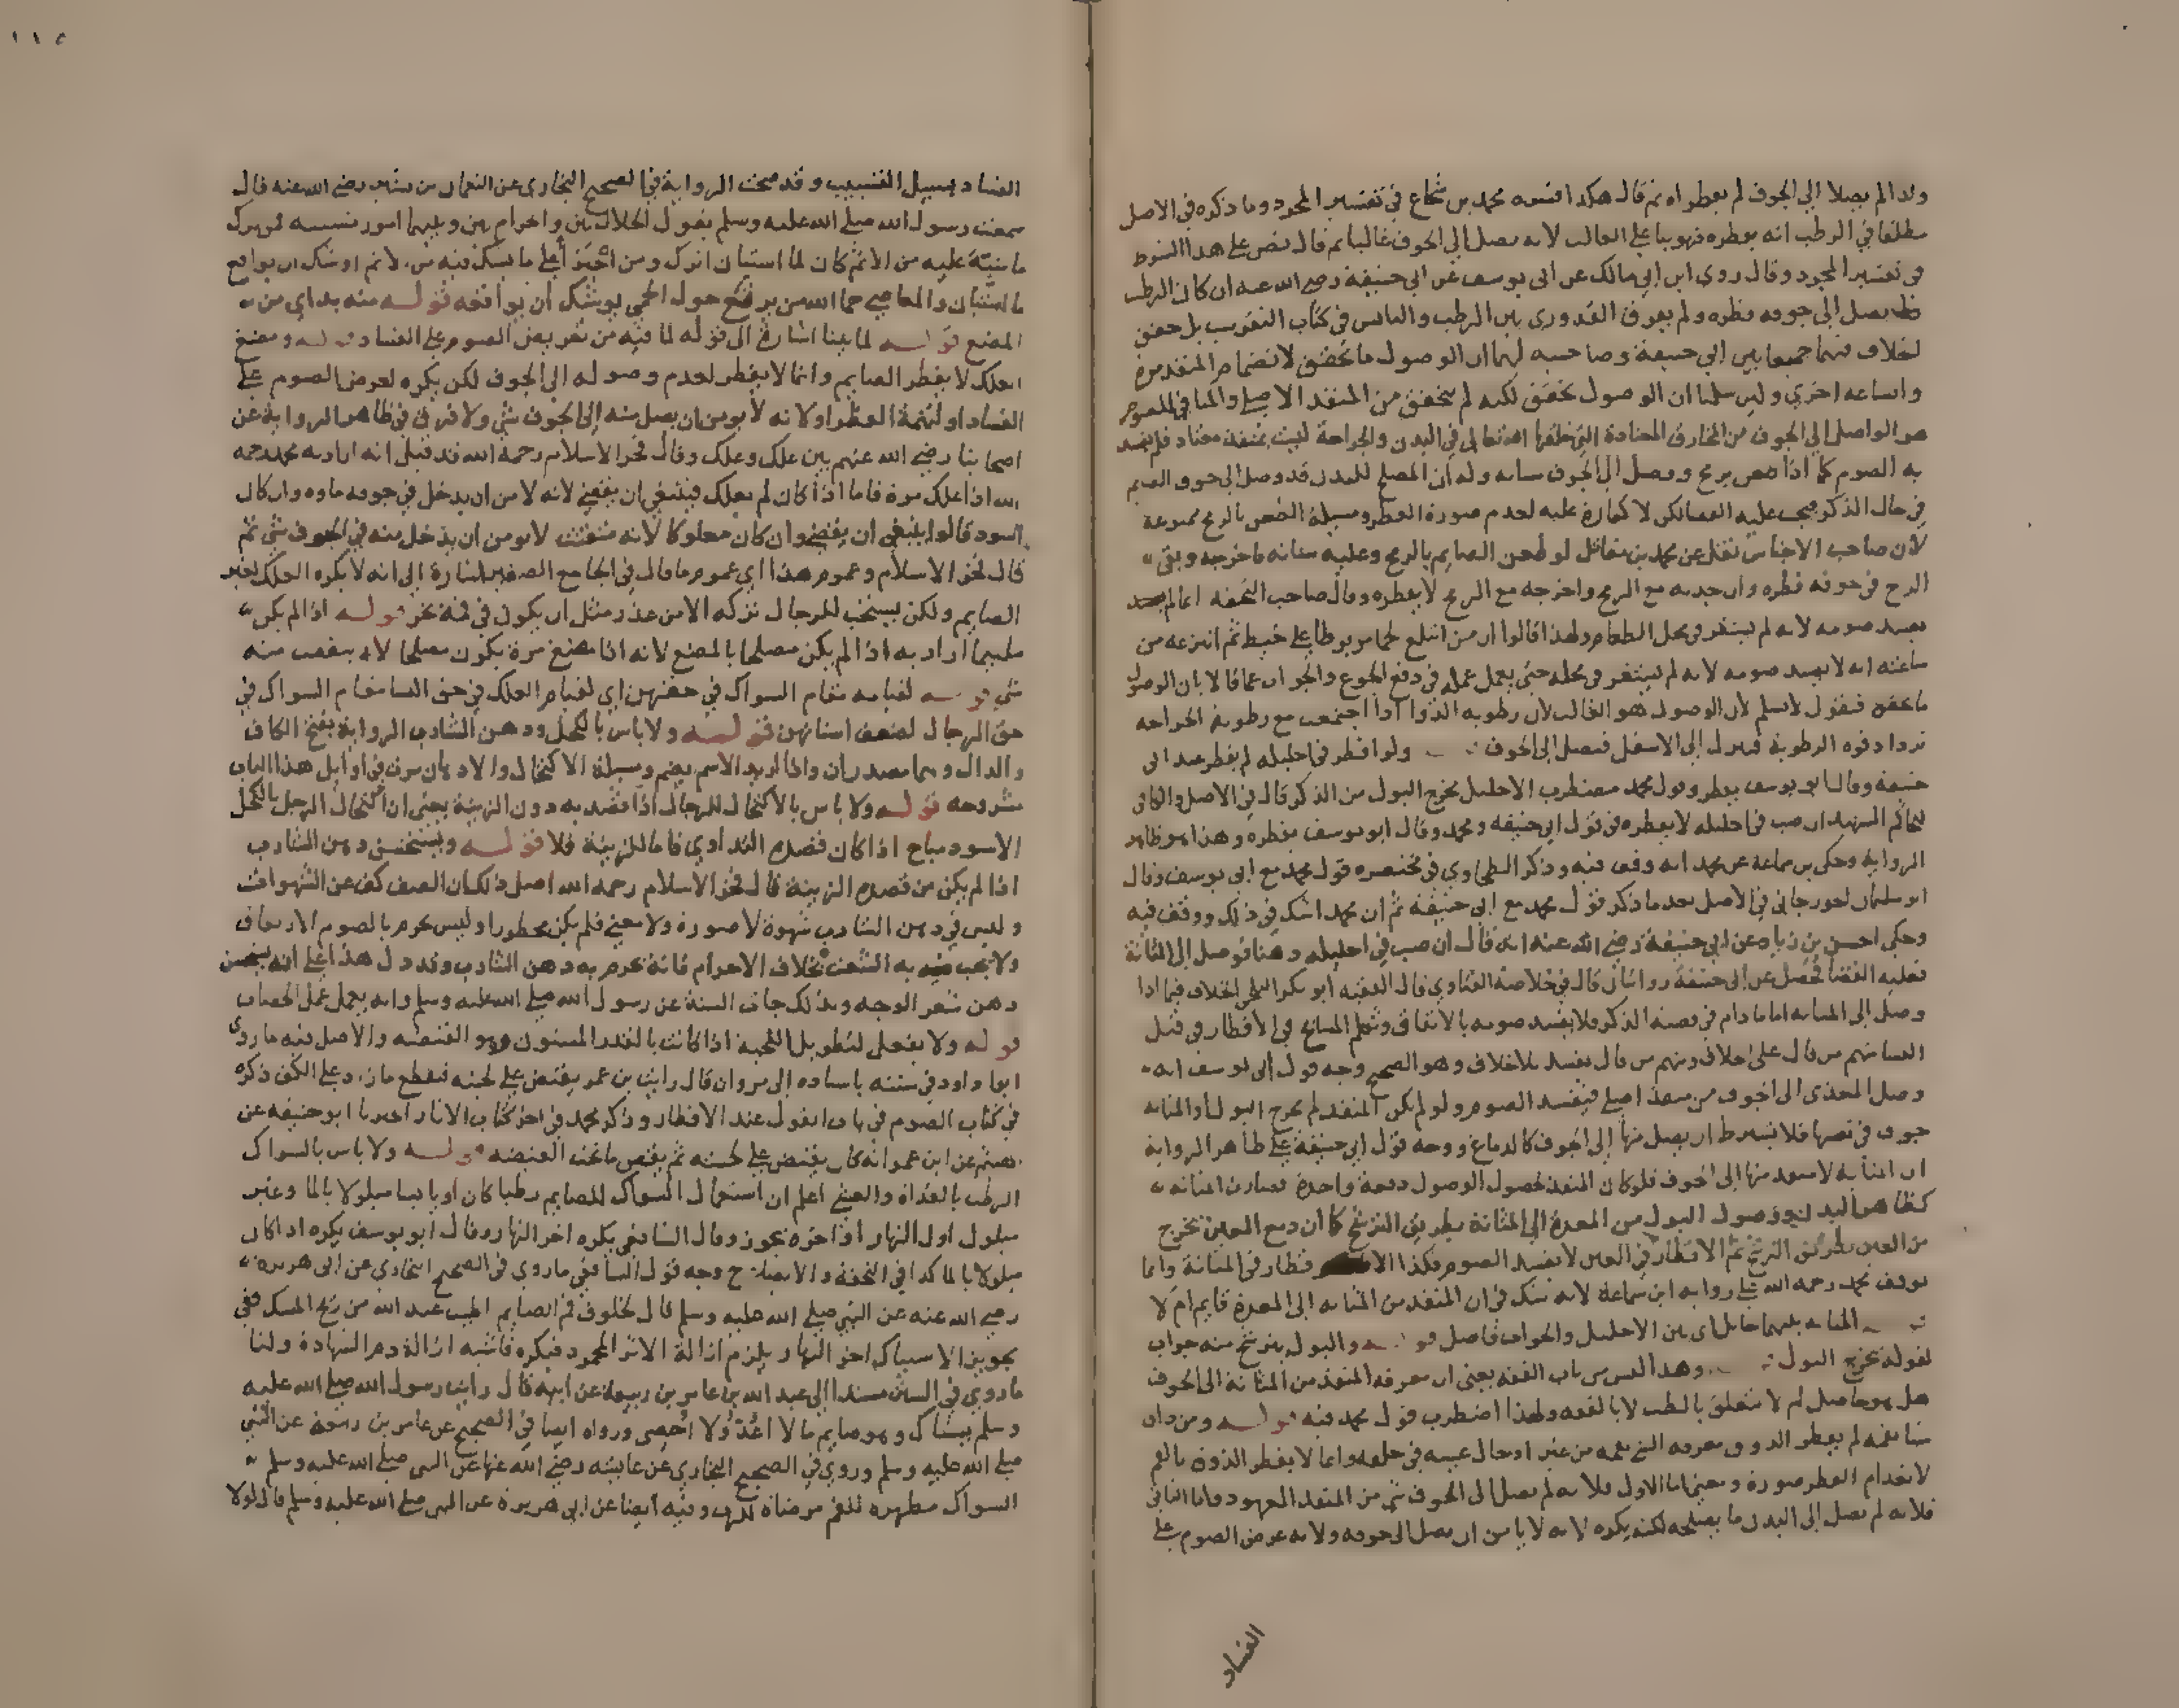 ولذا لم يصلا إلى الجوف لم يفطراه ثم قال هكذا فسره محمد بن شجاع في تفسير المجرد وما ذكره في الاصل
مطلقا في الرطب انه يفطره فهو بنا على الغالب لانه يصل إلى الجوف غالبا ثم قال نص على هذا الشرط
في تفسير المجرد وقال روى ابن ابي مالك عن ابي يوسف عن ابي حنيفة رضي الله عنه ان كان الرطب
يصل إلى جوفه فطره ولم يعرف القدوري بين الرطب واليابس في كتاب التقريب بل حقق
الخلاف فيهما جميعا بين ابي حنيفة وصاحبيه لهما ان الوصول ما تحقق لانضمام المنفذ مرة
واتساعه اخرى ولين سلمنا ان الوصول تحقق لكنه لم يتحقق من المنفذ الاصلي والمنافي للصوم
هو الواصل إلى الجوف من المخارق المعتادة التي خلقها الله تعالى في البدن والجراحة ليست بمنفذ معتاد فلم يفسد
به الصوم كما اذا طعن برمح ووصل إلى الجوف سنانه وله ان المصلح للبدن قد وصل إلى جوف الصايم
في حال الذكر فيجب عليه القضا لكن لا كفارة عليه لعدم صورة الفطر ومسيلة الطعن بالرمح ممنوعة
لان صاحب الاجناس نقل عن محمد بن مقاتل لو طعن الصايم بالرمح وعليه سنانه فاخرجه وبقى
الزج في جوفه فطره وان جذبه مع الرمح واخرجه مع الرمح لا يفطره وقال صاحب التحفة انما لم
يفسد صومه لانه لم يستقر في محل الطعام ولهذا قالوا ان من ابتلع لحما مربوطا على خيط ثم انتزعه من
ساعته انه لا يفسد صومه لانه لم يستقر في محله حتى يعمل عمله في دفع الجوع والجواب عما قالا بان الوصول
ما تحقق فنقول لا نسلم لان الوصول هو الغالب لان رطوبه الدوا اذا اجتمعت مع رطوبة الجراحه
تزداد قوة الرطوبة فينزل إلى الاسفل فيصل إلى الجوف ولو اقطر في احليله لم يفطر عند ابي
حنيفة وقال ابو يوسف يفطر وقول محمد مضطرب الاحليل مخرج البول من الذكر قال في الاصل والكافي
للحاكم الشهيد ان صب في احليله لا يفطره في قول ابي حنيفه ومحمد وقال ابو يوسف يفطره وهذا هو ظاهر
الرواية وحكى بن سماعة عن محمد انه وقف فيه وذكر الطحاوي في مختصره قول محمد مع ابي يوسف وقال
ابو سليمان الجورجاني في الاصل بعد ما ذكر قول محمد مع ابي حنيفة ثم ان محمدا شك في ذلك ووقف فيه
وحكى الحسن بن زياد عن ابي حنيفة رضي الله عنه انه قال ان صب في احليله دهنا فوصل إلى المثانة
فعليه القضا فحصل عن ابي حنيفة روايتان قال في خلاصة الفتاوي قال الفقيه ابو بكر البلخي الخلاف فيما اذا
وصل إلى المثانه اما ما دام في قصبة الذكر فلا يفسد صومه بالاتفاق وتكلم المشايخ في الاقطار في قبل
النسا منهم من قال على الخلاف ومنهم من قال يفسد بلا خلاف وهو الصحيح وجه قول ابي يوسف انه
وصل المغذي إلى الجوف من منفذ اصلي فيفسد الصوم ولو لم يكن المنفذ لم يخرج البول او المثانه
جوف في نفسها فلا يشترط ان يصل منها إلى الجوف كالدماغ ووجه قول ابي حنيفة على ظاهر الرواية
ان المثانه لا منفذ منها إلى الجوف فلو كان المنفذ لحصول الوصول دفعة واحدة فصارت المثانه
كظاهر البدن ووصول البول من المعدة إلى المثانة بطريق الترشح كما ان دمع العين يخرج
من العين بطريق الترشح ثم الاقطار في العين لا يفسد الصوم فكذا الاقطار في المثانة وانما
توقف محمد رحمه الله على رواية ابن سماعة لانه شك في ان المنفذ من المثانه إلى المعدة قايم ام لا
المثانه بينهما حايل اي بين الاحليل والجوف فاصل قوله والبول يترشح منه جواب
لقوله يخرج البول وهذا ليس من باب الفقه يعني ان معرفه المنفذ من المثانة إلى الجوف
هل هو حاصل ام لا متعلق بالطب لا بالفقه ولهذا اضطرب قول محمد فيه قوله ومن ذاق
شيا بفمه لم يفطر الذوق معرفة الشي بفمه من غير ادخال عينه في حلقه وانما لا يفطر الذوق بالفم
لانعدام الفطر صورة ومعنى اما الاول فلانه لم يصل إلى الجوف شي من المنفذ المعهود واما الثاني
فلانه لم يصل إلى البدن ما يصلحه لكنه يكره لانه لا يامن ان يصل إلى جوفه ولانه عرض الصوم على
الفساد
١١٥
الفساد بسبيل التسبيب وقد صحت الرواية في الصحيح البخاري عن النعمان بن بشير رضي الله عنه قال
سمعت رسول الله صلى الله عليه وسلم يقول الحلال بين والحرام بين وبينهما امور مشتبهه فمن ترك
ما شبه عليه من الاثم كان لما استبان اترك ومن اجترا على ما يشك فيه من الاثم اوشك ان يواقع
ما استبان والمعاصي حما الله من يرتع حول الحمى يوشك ان يواقعه قوله منه بد اي من
المضغ قوله لما بينا اشارة إلى قوله لما فيه من تعريض الصوم على الفساد قوله ومضغ
العلك لا يفطر الصايم وانما لا يفطر لعدم وصوله إلى الجوف لكن يكره لعرض الصوم على
الفساد او لتهمة الفطر او لانه لا يومن ان يصل منه إلى الجوف شي ولا فرق في ظاهر الرواية عن
اصحابنا رضي الله عنهم بين علك وعلك وقال فخر الاسلام رحمه الله قد قيل انه اراد به محمد رحمه
الله اذا علك مرة فاما اذا كان لم يعلك فينبغي ان يقضي لانه لا من ان يدخل في جوفه ماوه وان كان
اسود قالوا ينبغي ان يقضي وان كان معلوكا لانه متفتت لا يومن ان يدخل منه في الجوف شي ثم
قال فخر الاسلام وعموم هذا اي عموم ما قال في الجامع الصغير اشارة إلى انه لا يكره العلك لغير
الصايم ولكن يستحب للرجال تركه الا من عذر مثل ان يكون في فمه بخر قوله اذا لم يكن
ملتيما اراد به اذا لم يكن مصلحا بالمضغ لانه اذا مضغ مرة يكون مصلحا لانه ينفصل منه
شي قوله لقيامه مقام السواك في حقهن اي لقيام العلك في حق النسا مقام السواك في
حق الرجال لضعف اسنانهن قوله ولا باس بالكحل ودهن الشارب الرواية بفتح الكاف
والدال وهما مصدران واذا اريد الاسم يضم ومسيلة الاكتحال والادهان مرت في اوايل هذا الباب
مشروحه قوله ولا باس بالاكتحال للرجال اذا قصد به دون الزينة يعني ان اكتحال الرجل بالكحل
الاسود مباح اذا كان قصده التداوي فاما للزينة فلا قوله ويستحسن دهن الشارب
اذا لم يكن من قصده الزينة قال فخر الاسلام رحمه الله اصل ذلك ان الصيف كف عن الشهوات
وليس في دهن الشارب شهوة لا صورة ولا معنى فلم يكن محظورا وليس يحرم بالصوم الارتفاق
ولا يجب فيه به الشعث بخلاف الاحرام فانه يحرم به دهن الشارب وقد دل هذا على انه يستحسن
دهن شعر الوجه وبذلك جات السنة عن رسول الله صلى الله عليه وسلم وانه يعمل عمل الخضاب
قوله ولا يفعل لتطويل اللحية اذا كانت بالقدر المسنون وهو القبضه والاصل فيه ما روى
ابو داود في سننه باسناده إلى مروان قال رايت بن عمر يقبض على لحيته فيقطع ما زاد على الكف ذكره
في كتاب الصوم في باب القول عند الافطار وذكر محمد في اخر كتاب الاثار اخبرنا ابو حنيفه عن
الهيثم عن ابن عمر انه كان يقبض على لحيته ثم يقص ما تحت القبضه قوله ولا باس بالسواك
الرطب بالغداة والعشي اعلم ان استعمال السواك للصايم رطبا كان او يابسا مبلولا بالما وغير
مبلول اول النهار او اخره يجوز وقال الشافعي يكره اخر النهار وقال ابو يوسف يكره اذا كان
مبلولا بالما كذا في التحفة والايضاح وجه قول الشافعي ما روي في الصحيح البخاري عن ابي هريرة
رضي الله عنه عن النبي صلى الله عليه وسلم قال لخلوف فم الصايم اطيب عند الله من ريح المسك ففي
تجويز الاستياك اخر النهار يلزم ازالة الاثر المحمود فيكره فاشبه ازالة دم الشهادة ولنا
ما روي في السنن مسندا إلى عبد الله بن عامر بن ربيعة عن ابيه قال رايت رسول الله صلى الله عليه
وسلم يستاك وهو صايم ما لا اعد ولا احصى ورواه ايضا في الصحيح عن عامر بن ربيعة عن النبي
صلى الله عليه وسلم وروي في الصحيح البخاري عن عايشه رضي الله عنها عن النبي صلى الله عليه وسلم
السواك مطهره للفم مرضاة للرب وفيه ايضا عن ابي هريرة عن النبي صلى الله عليه وسلم قال لولا